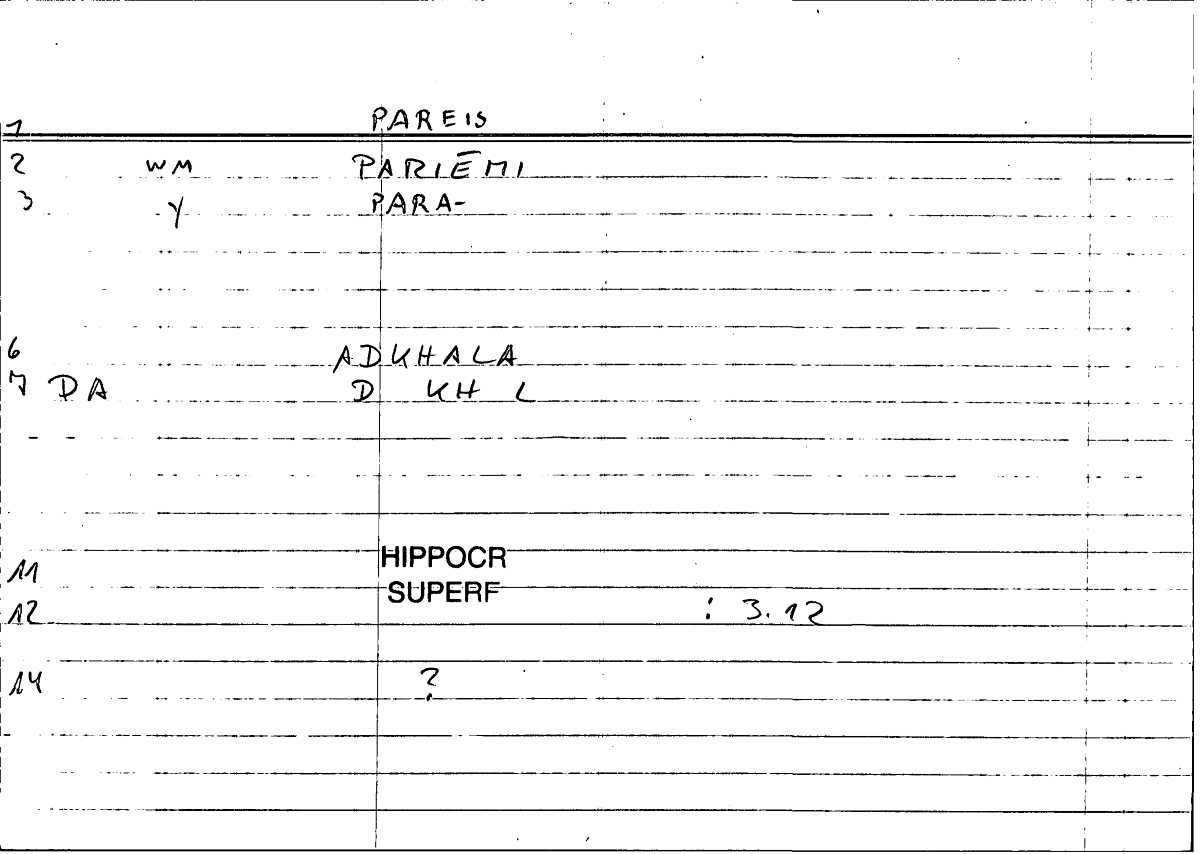 1 PAREIS
2 WM PARIĒMI
3 Y PARA-
6 ADKHALA
7 DA D KH L
11 HIPPOCR
SUPERF
12 : 3.12
14 ?